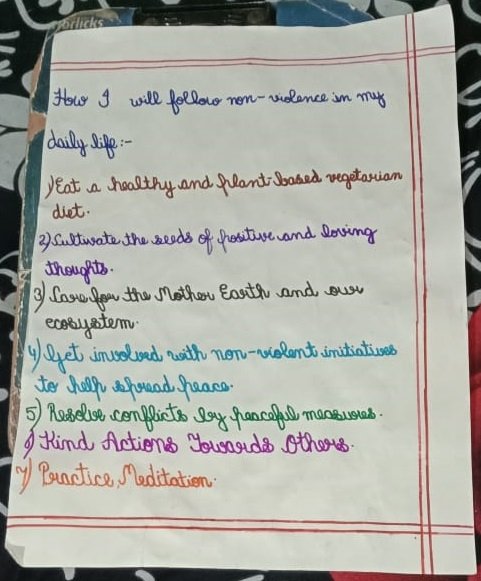 orlicks
How I will follow non-violence in my
daily life:-
1) Eat a healthy and plant-based vegetarian
diet.
2) Cultivate the seeds of positive and loving
thoughts.
3) Care for the Mother Earth and our
ecosystem.
4) Get involved with non-violent initiatives
to help spread peace.
5) Resolve conflicts by peaceful measures.
6) Kind Actions Towards Others.
7) Practice Meditation.